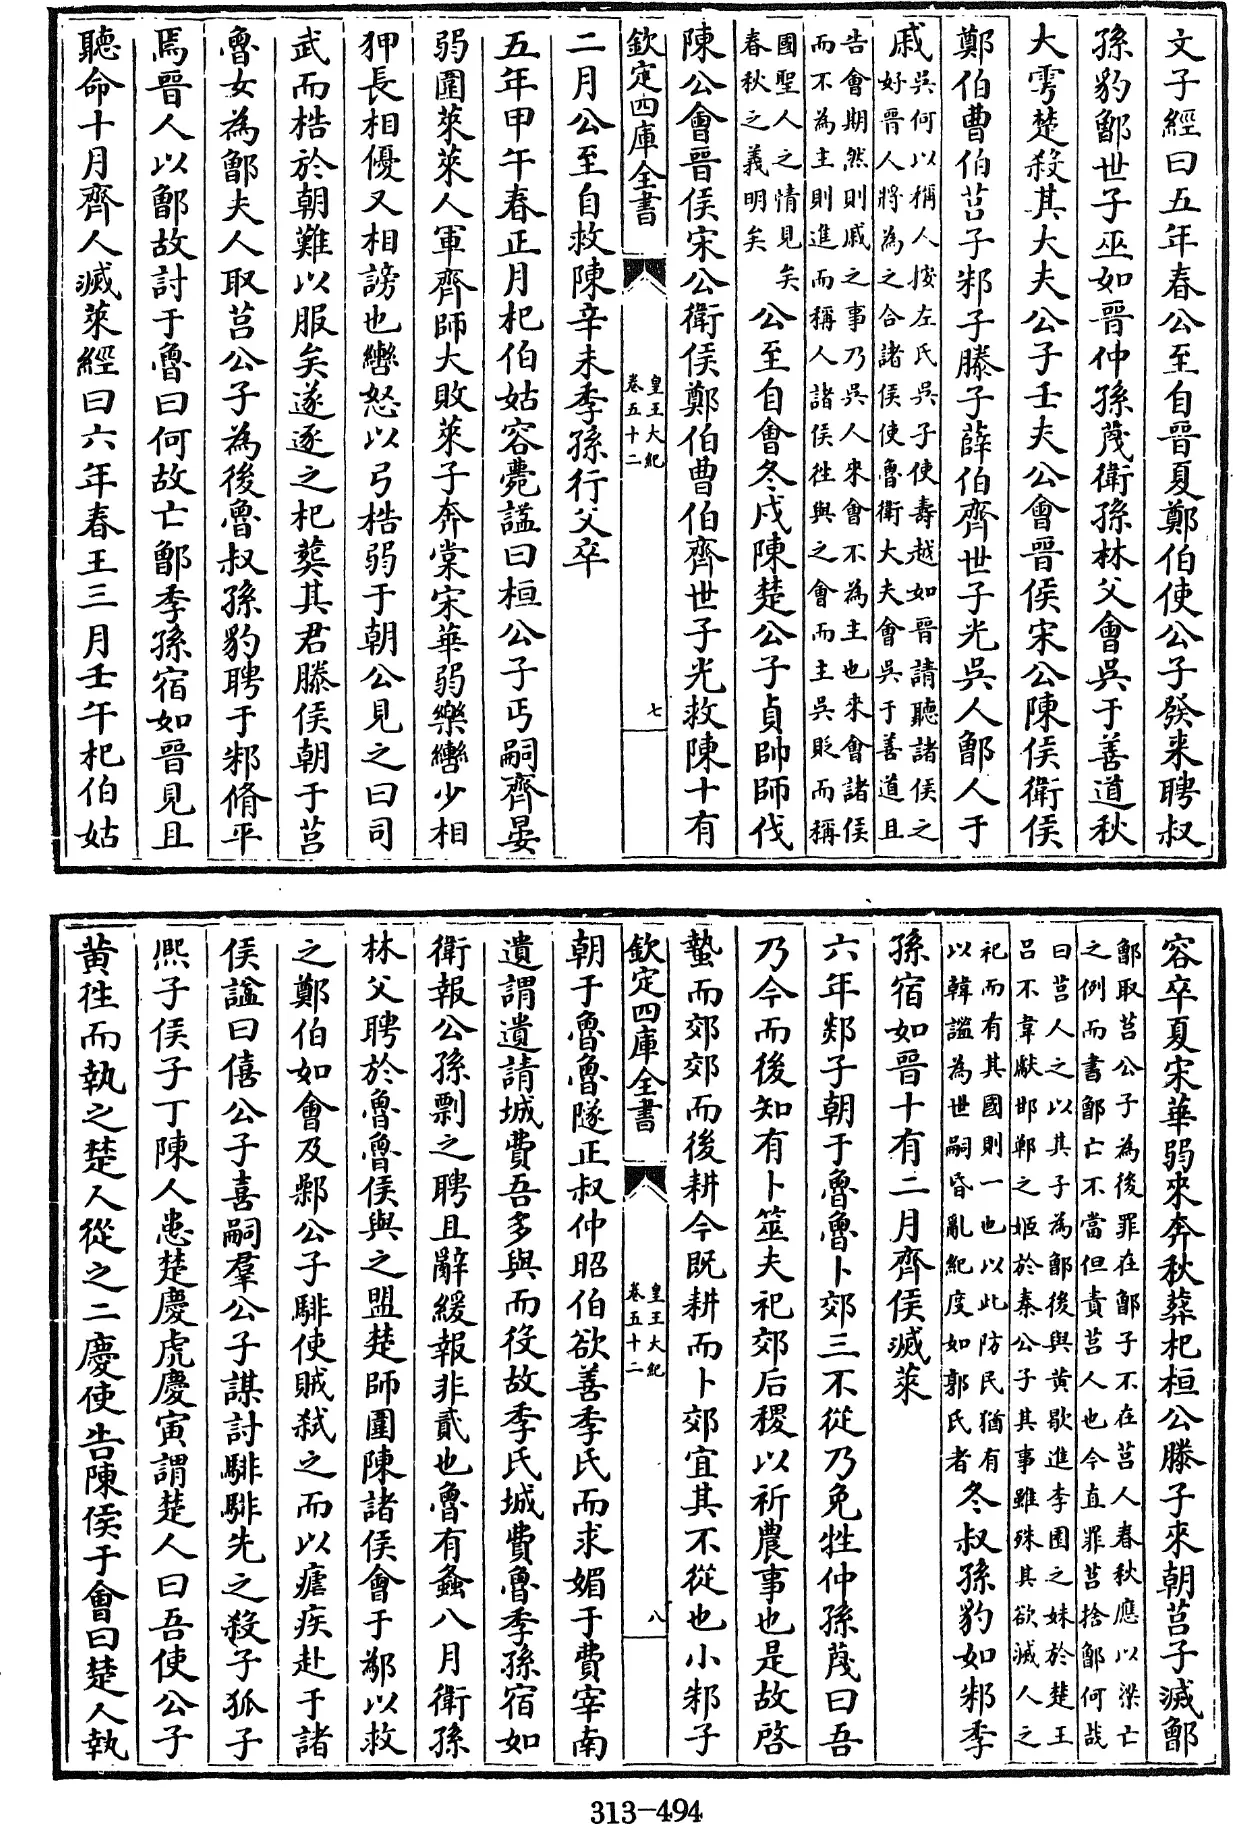 文子經曰五年春公至自晉夏鄭伯使公子發来聘叔
孫豹鄫世子巫如晉仲孫蔑衛孫林父會吳于善道秋
大雩楚殺其大夫公子壬夫公會晉侯宋公陳侯衛侯
鄭伯曹伯莒子邾子滕子薛伯齊世子光吳人鄫人于
戚吳何以稱人按左氏吳子使壽越如晉請聽諸侯之
好晉人將為之合諸侯使魯衛大夫會吳于善道且
告會期然則戚之事乃吳人來會不為主也來會諸侯
而不為主則進而稱人諸侯徃與之會而主吳貶而稱
國聖人之情見矣
春秋之義明矣公至自會冬戍陳楚公子貞帥師伐
陳公會晉侯宋公衛侯鄭伯曹伯齊世子光救陳十有
欽定四庫全書
皇王大紀
卷五十二
七
二月公至自救陳辛未季孫行父卒
五年甲午春正月杞伯姑容薨諡曰桓公子丐嗣齊晏
弱圍萊萊人軍齊師大敗萊子奔棠宋華弱樂轡少相
狎長相優又相謗也轡怒以弓梏弱于朝公見之曰司
武而梏於朝難以服矣遂逐之杞葬其君滕侯朝于莒
魯女為鄫夫人取莒公子為後魯叔孫豹聘于邾脩平
焉晉人以鄫故討于魯曰何故亡鄫季孫宿如晉見且
聽命十月齊人滅萊經曰六年春王三月壬午杞伯姑
容卒夏宋華弱來奔秋葬杞桓公滕子來朝莒子滅鄫
鄫取莒公子為後罪在鄫子不在莒人春秋應以梁亡
之例而書鄫亡不當但責莒人也今直罪莒捨鄫何哉
曰莒人之以其子為鄫後與黄歇進李園之妹於楚王
吕不韋獻邯鄲之姬於秦公子其事雖殊其欲滅人之
祀而有其國則一也以此防民猶有
以韓謐為世嗣昏亂紀度如郭氏者冬叔孫豹如邾季
孫宿如晉十有二月齊侯滅萊
六年郯子朝于魯魯卜郊三不從乃免牲仲孫蔑曰吾
乃今而後知有卜筮夫祀郊后稷以祈農事也是故啓
蟄而郊郊而後耕今既耕而卜郊宜其不從也小邾子
欽定四庫全書
皇王大紀
卷五十二
八
朝于魯魯隧正叔仲昭伯欲善季氏而求媚于費宰南
遺謂遺請城費吾多與而役故季氏城費魯季孫宿如
衛報公孫剽之聘且辭緩報非貳也魯有螽八月衛孫
林父聘於魯魯侯與之盟楚師圍陳諸侯會于鄬以救
之鄭伯如會及鄵公子騑使賊弑之而以瘧疾赴于諸
侯諡曰僖公子喜嗣羣公子謀討騑騑先之殺子狐子
熈子侯子丁陳人患楚慶虎慶寅謂楚人曰吾使公子
黄徃而執之楚人從之二慶使告陳侯于會曰楚人執
313-494